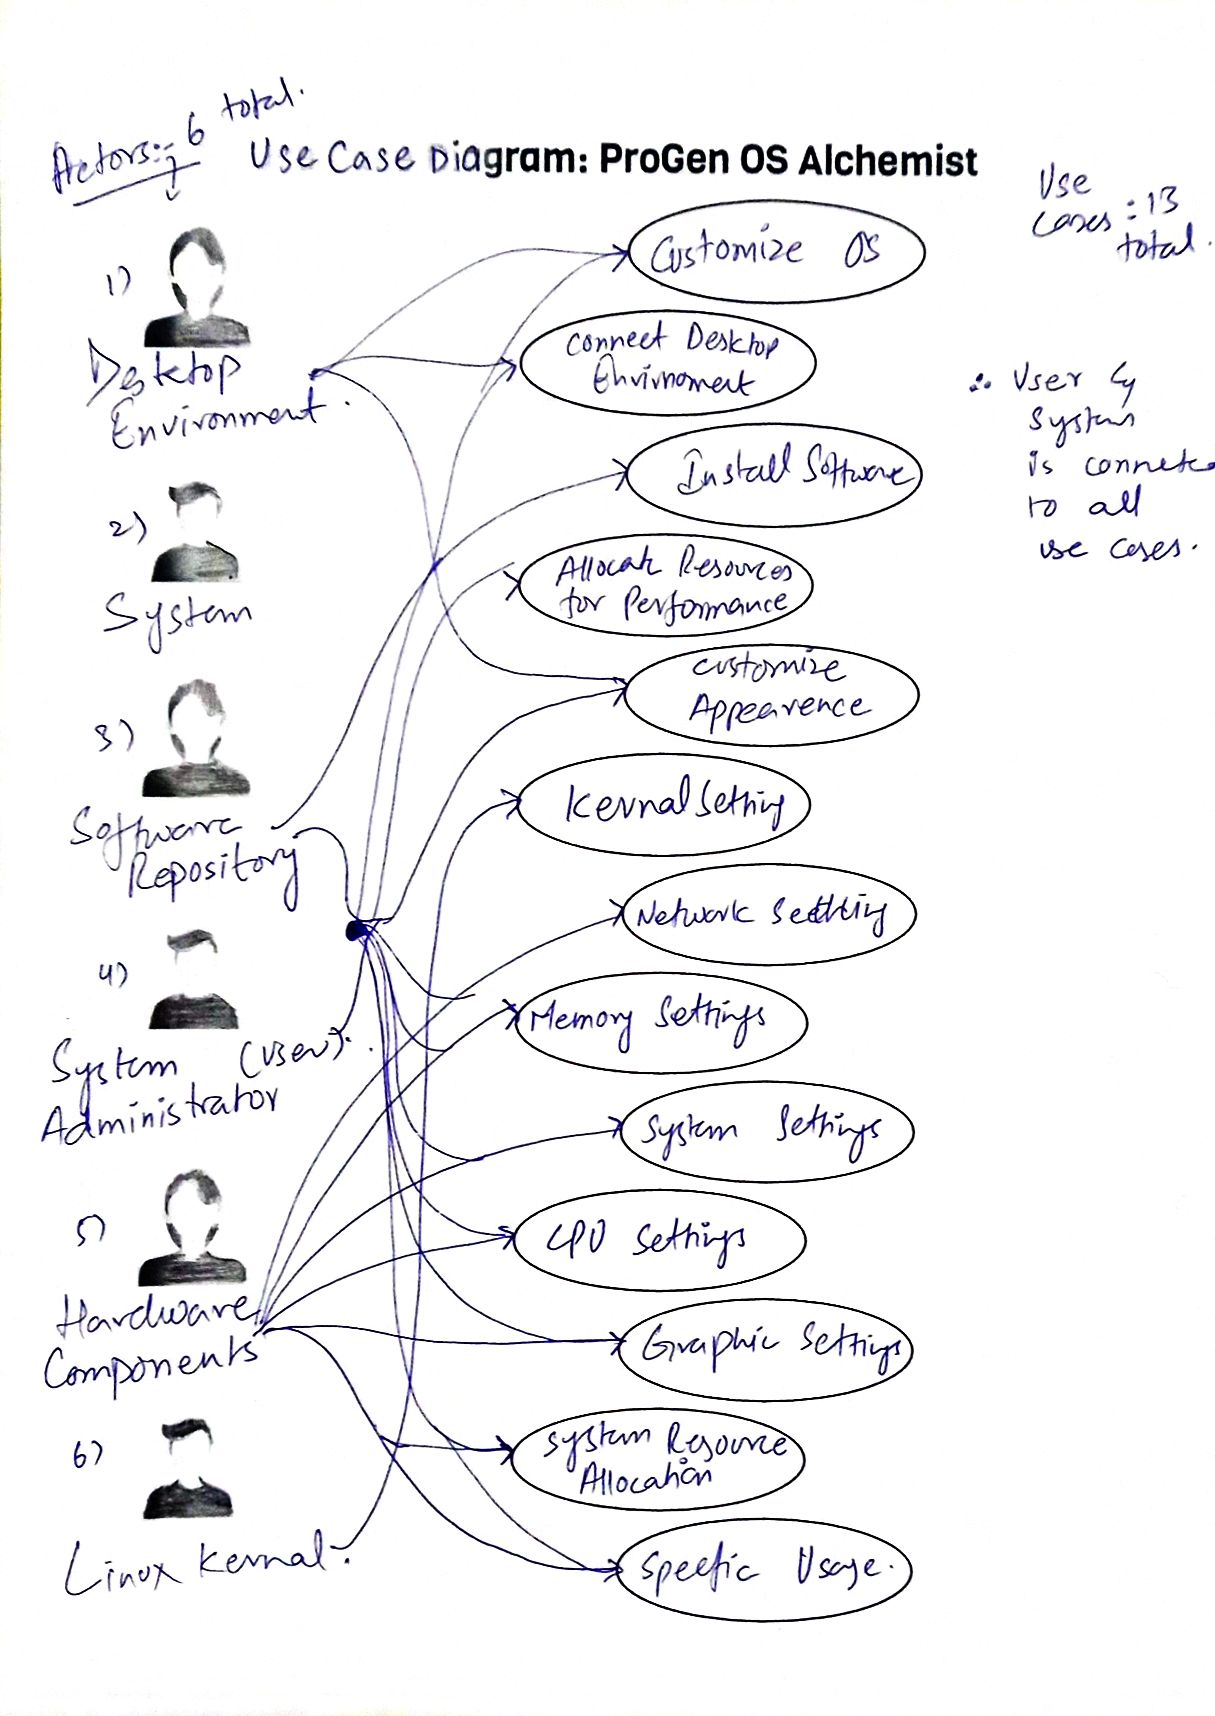 Actors:- 6 total.
Use Case Diagram: ProGen OS Alchemist
Use
Cases : 13
total.
1)
Desktop
Environment.
2)
System
3)
Software
Repository
4)
System (User).
Administrator
5)
Hardware
Components
6)
Linux Kernal.
Customize OS
Connect Desktop
Envirnoment
Install Software
Allocate Resources
for Performance
Customize
Appearence
Kernal Setting
Network Setting
Memory Settings
System Settings
CPU Settings
Graphic Settings
System Resource
Allocation
Speefic Usage.
∴ User
System
is connet
to all
use cases.